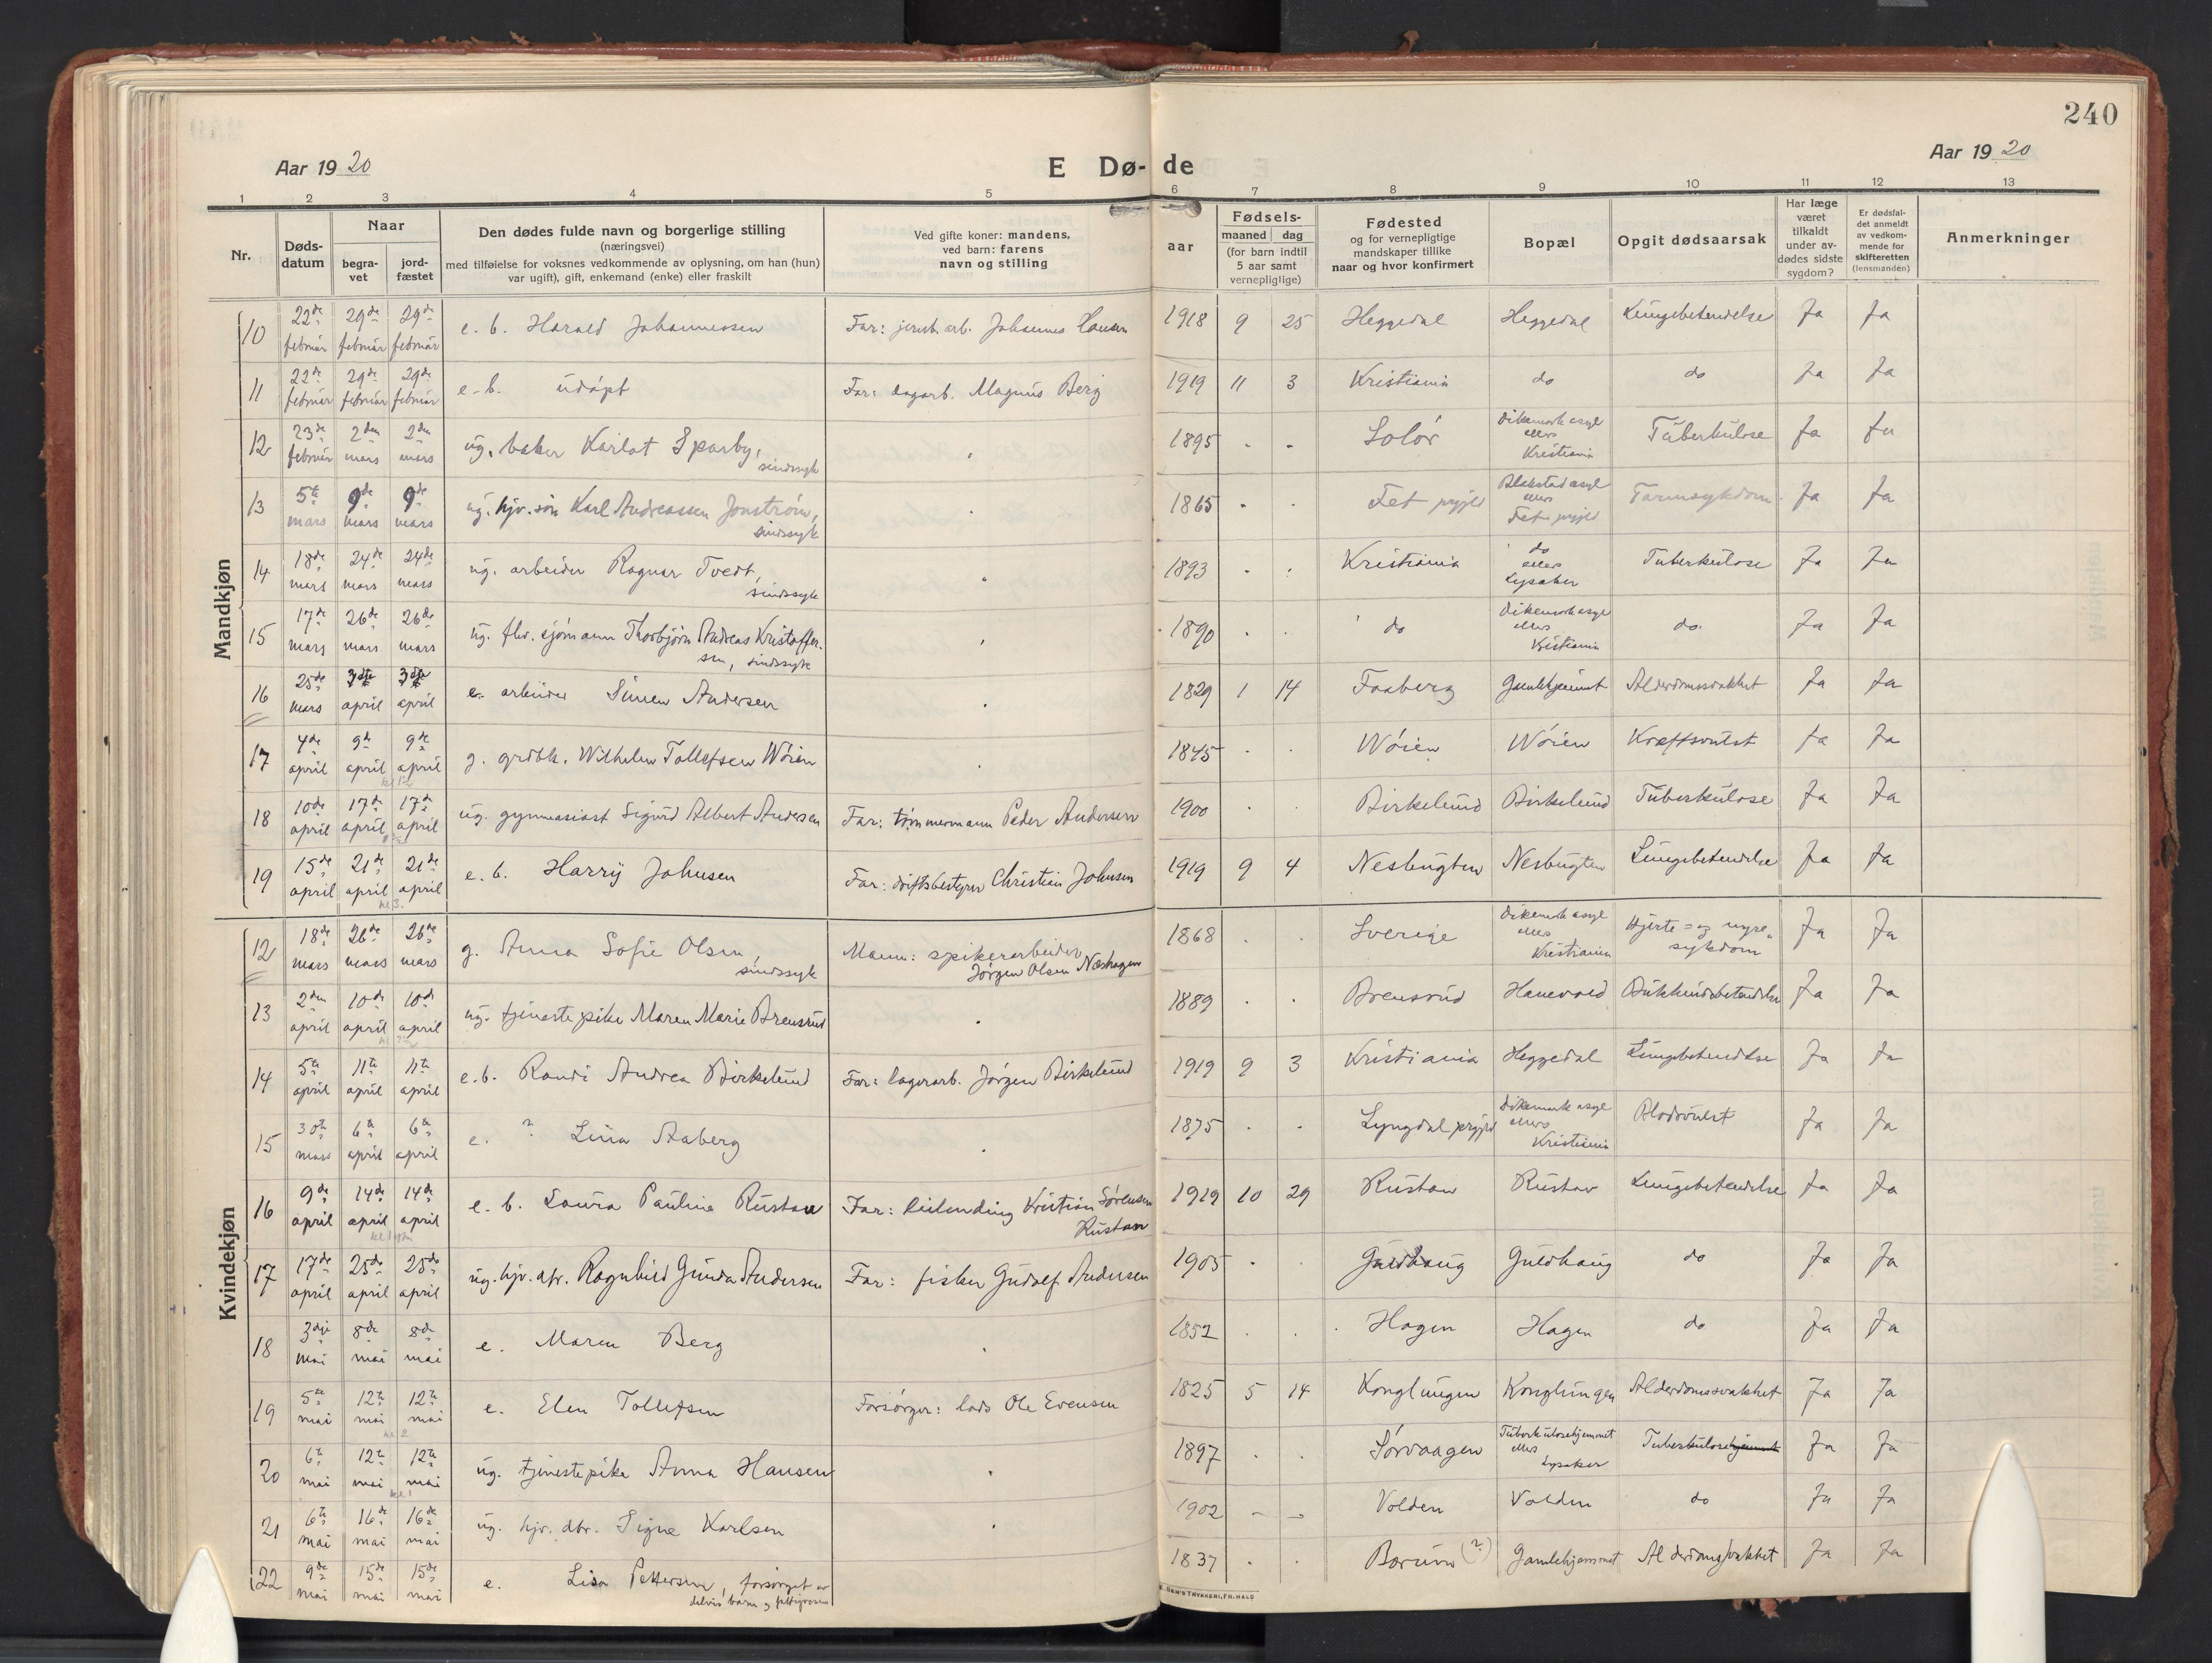 240
Aar 1920
E Dø-de
Aar 1920
1 2 3 4 5 6 7 8 9 10 11 12 13
Nr.
Døds-
datum
Naar
begra-
vet
jord-
fæstet
Den dødes fulde navn og borgerlige stilling
(næringsvei)
med tilføielse for voksnes vedkommende av oplysning, om han (hun)
var ugift), gift, enkemand (enke) eller fraskilt
Ved gifte koner: mandens,
ved barn: farens
navn og stilling
aar
Fødsels-
maaned dag
(for barn indtil
5 aar samt
vernepligtige)
Fødested
og for vernepligtige
mandskaper tillike
naar og hvor konfirmert
Bopæl
Opgit dødsaarsak
Har læge
været
tilkaldt
under av-
dødes sidste
sygdom?
Er dødsfal-
det anmeldt
av vedkom-
mende for
skifteretten
(lensmanden)
Anmerkninger
Mandkjøn
10 22de februar 29de februar 29de februar e. b. Harald Johannessen Far: jernb.arb. Johannes Hansen 1918 9 25 Heggedal Heggedal Lungebetendelse Ja Ja
11 22de februar 29de februar 29de februar e. b. udøpt Far: lagarb. Magnus Berg 1919 11 3 Kristiania do do Ja Ja
12 23de februar 2den mars 2den mars ug. baker Karlot Sparby, sindssyk 1895 Solør Dikemark asyl ellers Kristiania Tuberkulose Ja Ja
13 5te mars 9de mars 9de mars ug. hjv. søn Karl Andreassen Jonstrøm, sindssyk 1865 Fet prgjld Blakstad asyl ellers Fet prgjld Tarmsykdom Ja Ja
14 18de mars 24de mars 24de mars ug. arbeider Ragnar Tvedt, sindssyk 1893 Kristiania do ellers Lysaker Tuberkulose Ja Ja
15 17de mars 26de mars 26de mars ug. fhv. sjømann Thorbjørn Andreas Kristoffer-
sen, sindssyk 1890 do Dikemark asyl ellers Kristiania do. Ja Ja
16 25de mars 3dje april 3dje april e. arbeider Simen Andersen 1829 1 14 Faaberg Gamlehjemmet Alderdomssvakhet Ja Ja
17 4de april 9de april 9de april g. grdbk. Wilhelm Tollefsen Wøien 1845 Wøien Wøien Kræftsvulst Ja Ja
18 10de april 17de april 17de april ug. gymnasiast Sigurd Albert Andersen Far: tømmermann Peder Andersen 1900 Birkelund Birkelund Tuberkulose Ja Ja
19 15de april 21de april 21de april e. b. Harry Johnsen Far: driftsbestyrer Christian Johnsen 1919 9 4 Nesbugten Nesbugten Lungebetendelse Ja Ja
Kvindekjøn
12 18de mars 26de mars 26de mars g. Anna Sofie Olsen, sindssyk Mann: spikerarbeider
Jørgen Olsen Næshagen 1868 Sverige Dikemark asyl ellers Kristiania Hjerte- og nyre-
sykdom Ja Ja
13 2den april 10de april 10de april ug. tjenestepike Maren Marie Brensrud 1889 Brensrud Hanevold Bukhindebetendelse Ja Ja
14 5te april 11te april 11te april e. b. Randi Andrea Birkelund Far: lagerarb. Jørgen Birkelund 1919 9 3 Kristiania Heggedal Lungebetendelse Ja Ja
15 30te mars 6te april 6te april e. ? Lina Aaberg 1875 Lyngdal prgjld Dikemark asyl ellers Kristiania Blodsvulst Ja Ja
16 9de april 14de april 14de april e. b. Laura Pauline Rustan Far: leilending Kristian Sørensen
Rustan 1919 10 29 Rustan Rustan Lungebetendelse Ja Ja
17 17de april 25de april 25de april ug. hjv. dtr. Ragnhild Gunda Andersen Far: fisker Gudolf Andersen 1905 Guldhaug Guldhaug do Ja Ja
18 3dje mai 8de mai 8de mai e. Maren Berg 1852 Hagen Hagen do Ja Ja
19 5te mai 12te mai 12te mai e. Elen Tollefsen Forsørger: lods Ole Evensen 1825 5 14 Konglungen Konglungen Alderdomssvakhet Ja Ja
20 6te mai 12te mai 12te mai ug. tjenestepike Anna Hansen 1897 Sørvaagen Tuberkulosehjemmet ellers Lysaker Tuberkulosehjemmet Ja Ja
21 6te mai 16de mai 16de mai ug. hjv. dtr. Signe Karlsen 1902 Volden Volden do Ja Ja
22 9de mai 15de mai 15de mai e. Lisa Pettersen, forsørget av
delvis barn og fattigvesen 1837 Bærum (?) Gamlehjemmet Alderdomssvakhet Ja Ja